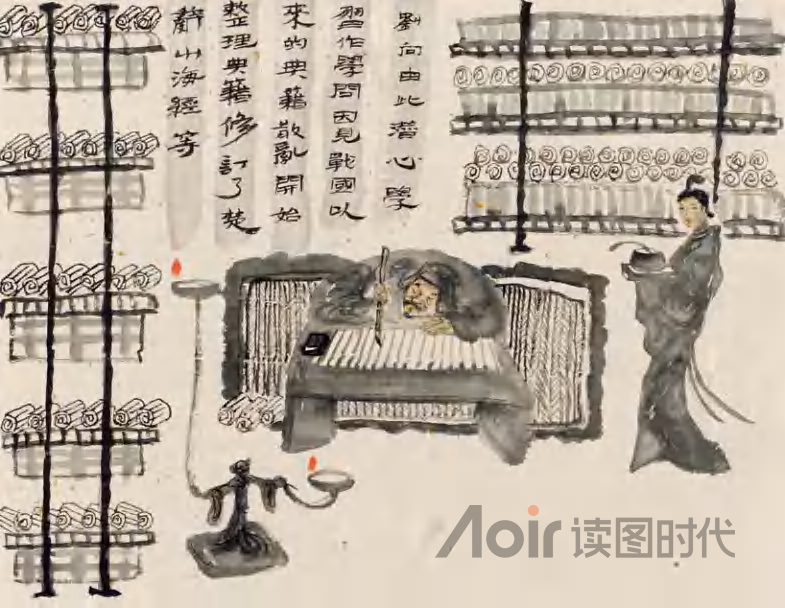 劉向由此潛心學
習作學問因見戰國以
來的典籍散亂開始
整理典籍修訂了楚
辭山海經等
Aoir 读图时代